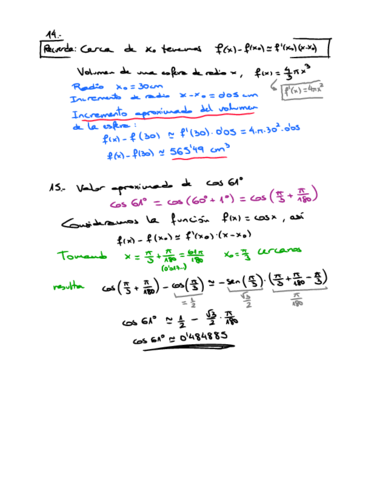 14.-
Recuerda: Cerca de x₀ tenemos f(x)-f(x₀) ≃ f'(x₀)(x-x₀)
Volumen de una esfera de radio x, f(x)=4/3 πx³
Radio x₀ = 30cm
f'(x)=4πx²
Incremento de radio x-x₀ = 0'05 cm
Incremento aproximado del volumen
de la esfera:
f(x)-f(30) ≃ f'(30)·0'05 = 4·π·30²·0'05
f(x)-f(30) ≃ 565'49 cm³
15.- Valor aproximado de cos 61º
cos 61º = cos(60º+1º) = cos(π/3 + π/180)
Consideramos la función f(x)=cosx, así
f(x)-f(x₀) ≃ f'(x₀)·(x-x₀)
Tomando x = π/3 + π/180 = 61π/180 x₀ = π/3 cercanos
resulta cos(π/3 + π/180) - cos(π/3) ≃ -sen(π/3)·(π/3 + π/180 - π/3)
= 1/2 √3/2 π/180
cos 61º ≃ 1/2 - √3/2 · π/180
cos 61º ≃ 0'484885